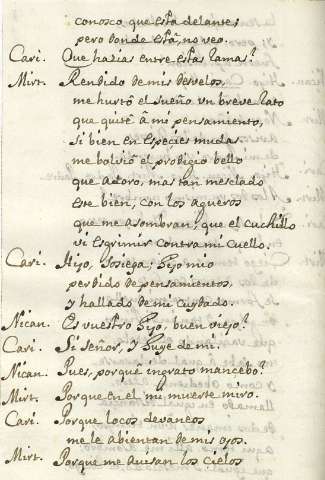 conosco que està delante;
pero donde està, no veo.
Cari. Que hazias entre estas ramas?
Mirt. Rendido de mis desvelos,
me hurtò el sueño vn breve rato
que quitè à mi pensamiento,
si bien en especies mudas
me bolviò el prodigio bello
que adoro, mas tan mesclado
este bien, con los agueros
que me asombran, que el cuchillo
vi esgrimir contra mi cuello.
Cari. Hijo, sosiega; Hijo mio
perdido de pensamientos,
y hallado de mi cuydado.
Nican. Es vuestro Hijo, buen viejo?
Cari. Si señor, y Huye de mi.
Nican. Pues, porque ingrato mancebo?
Mirt. Porque en el mi muerte miro.
Cari. Porque locos devaneos
me le ahientan de mis ojos.
Mirt. Porque me avisan los cielos